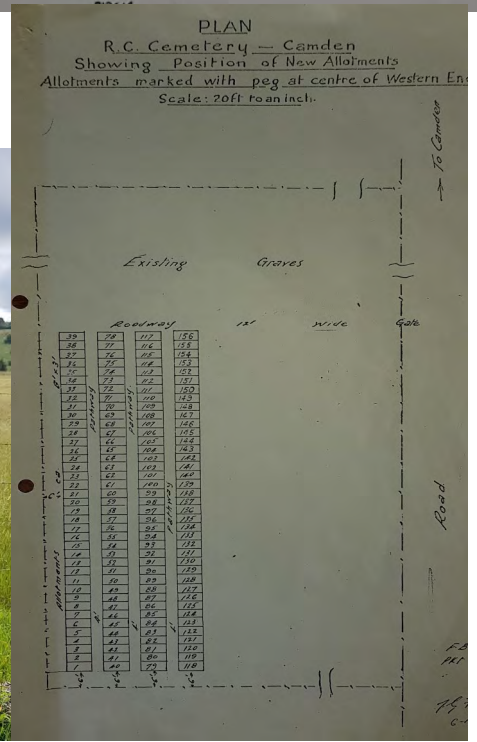 PLAN
R.C. Cemetery — Camden
Showing Position of New Allotments
Allotments marked with peg at centre of Western En
Scale: 20ft to an inch.
→ To Camden
Existing Graves
Roadway 12' Wide Gate
39 78 117 156
38 77 116 155
37 76 115 154
36 75 114 153
35 74 113 152
34 73 112 151
33 72 111 150
32 71 110 149
31 70 109 148
30 69 108 147
29 68 107 146
28 67 106 145
27 66 105 144
26 65 104 143
25 64 103 142
24 63 102 141
23 62 101 140
22 61 100 139
21 60 99 138
20 59 98 137
19 58 97 136
18 57 96 135
17 56 95 134
16 55 94 133
15 54 93 132
14 53 92 131
13 52 91 130
12 51 90 129
11 50 89 128
10 49 88 127
9 48 87 126
8 47 86 125
7 46 85 124
6 45 84 123
5 44 83 122
4 43 82 121
3 42 81 120
2 41 80 119
1 40 79 118
Allotments
Pathway
Pathway
4'
4'
Road